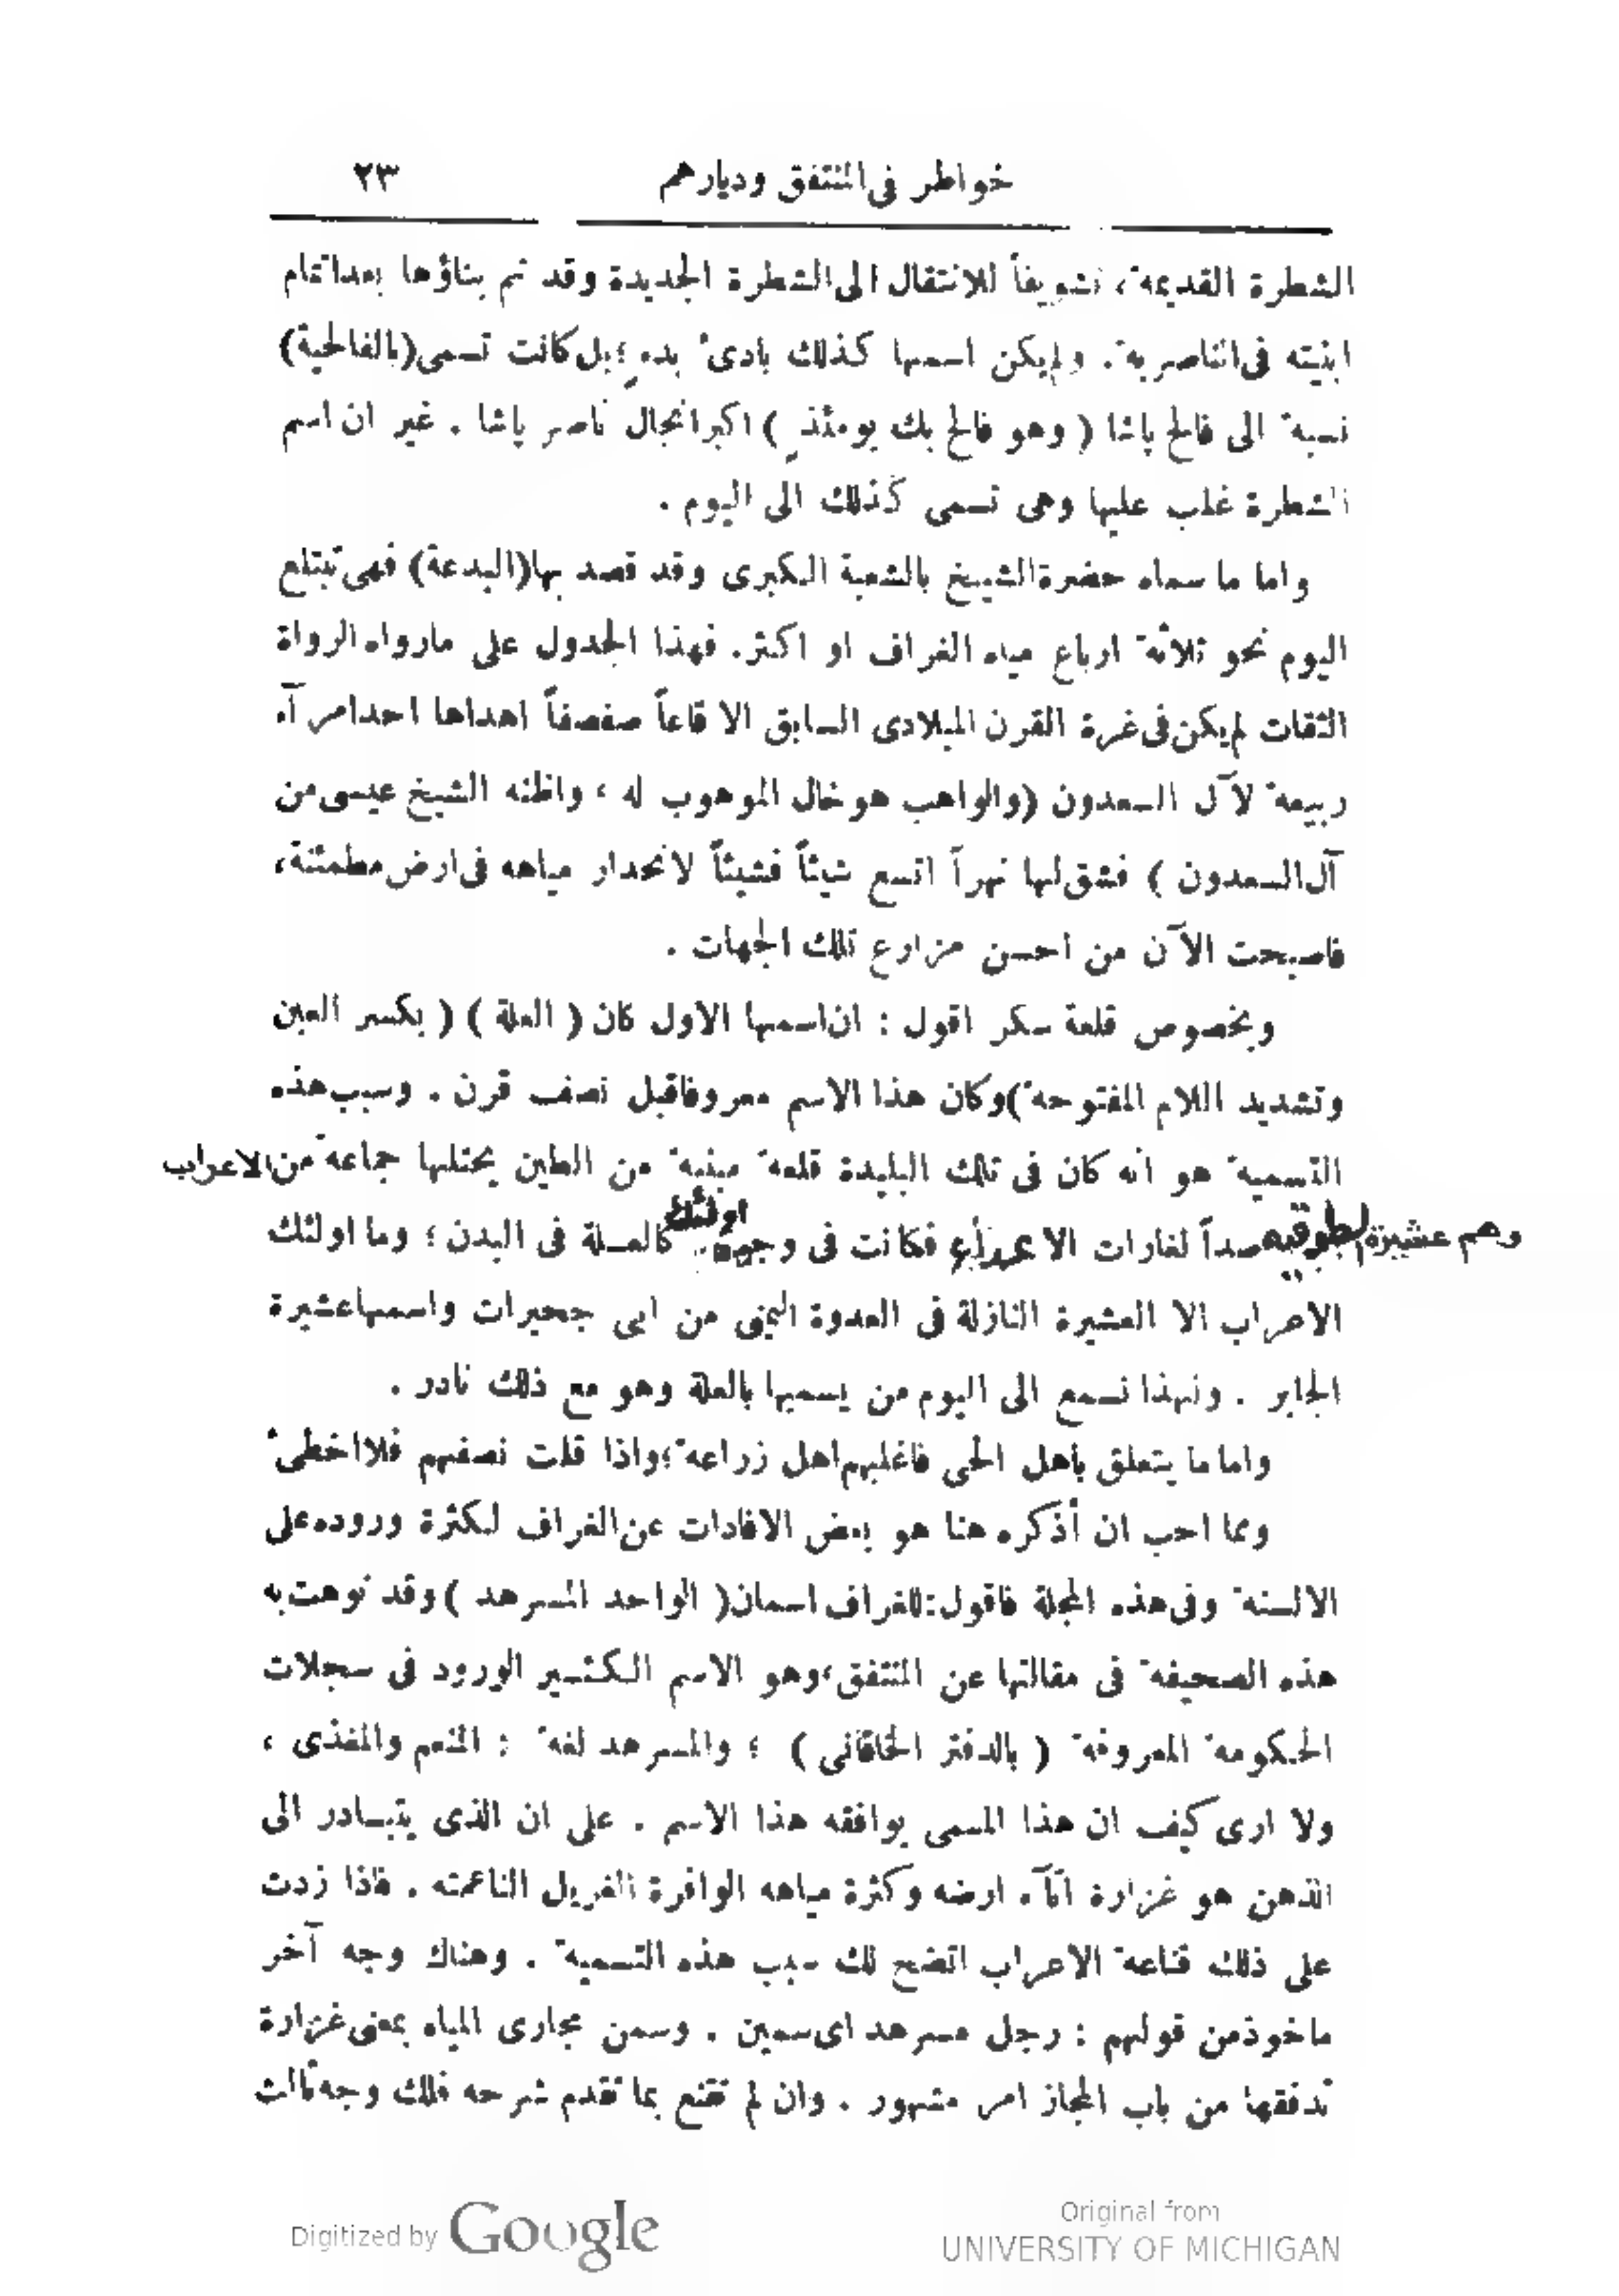 خواطر فى المنتفق وديارهم ٢٣
الشطرة القديمة، تشويقاً للانتقال الى الشطرة الجديدة وقد تم بناؤها بعد اتمام
ابنيته فى الناصرية. ولم يكن اسمها كذلك بادئ بدءٍ؛ بل كانت تسمى (بالفالحية)
نسبة الى فالح پاشا ( وهو فالح بك يومئذٍ ) اكبر انجال ناصر پاشا . غير ان اسم
الشطرة غلب عليها وهى تسمى كذلك الى اليوم .
واما ما سماه حضرة الشيخ بالشعبة الكبرى وقد قصد بها (البدعة) فهى تبتلع
اليوم نحو ثلاثة ارباع مياه الغراف او اكثر. فهذا الجدول على مارواه الرواة
الثقات لم يكن فى غرة القرن الميلادى السابق الا قاعاً صفصفاً اهداها احد امرآء
ربيعة لآل السعدون (والواهب هو خال الموهوب له ، واظنه الشيخ عيسى من
آل السعدون ) فشق لها نهراً اتسع شيئاً فشيئاً لانحدار مياهه فى ارض مطمئنة،
فاصبحت الآن من احسن مزارع تلك الجهات .
وبخصوص قلعة سكر اقول : ان اسمها الاول كان ( العلة ) ( بكسر العين
وتشديد اللام المفتوحة) وكان هذا الاسم معروفا قبل نصف قرن . وسبب هذه
التسمية هو انه كان فى تلك البليدة قلعة مبنية من الطين يحتلها جماعة من الاعراب
وهم عشيرة صداً لغارات الا فكانت فى اولئك كالعلة فى البدن ؛ وما اولئك
الاعراب الا العشيرة النازلة فى العدوة اليمنى من ابى جحيرات واسمها عشيرة
الجابر . ولهذا نسمع الى اليوم من يسميها بالعلة وهو مع ذلك نادر .
واما ما يتعلق بأهل الحى فاغلبهم اهل زراعة؛ واذا قلت نصفهم فلا اخطئ
ومما احب ان أذكره هنا هو بعض الافادات عن الغراف لكثرة وروده على
الالسنة وفى هذه المجلة فاقول: للغراف اسمان ( الواحد المسرهد ) وقد نوهت به
هذه الصحيفة فى مقالتها عن المنتفق، وهو الاسم الكثير الورود فى سجلات
الحكومة المعروفة ( بالدفتر الخاقانى ) ؛ والمسرهد لغة : المنعم والمغذى ،
ولا ارى كيف ان هذا المسمى يوافقه هذا الاسم . على ان الذى يتبادر الى
الذهن هو غزارة اتآء ارضه وكثرة مياهه الوافرة الغريل الناعمته . فاذا زدت
على ذلك قناعة الاعراب اتضح لك سبب هذه التسمية . وهناك وجه آخر
ماخوذ من قولهم : رجل مسرهد اى سمين . وسمن مجارى المياه بمعنى غزارة
تدفقها من باب المجاز امر مشهور . وان لم تقنع بما تقدم شرحه فلك وجه ثالث
Digitized by Google
Original from
UNIVERSITY OF MICHIGAN